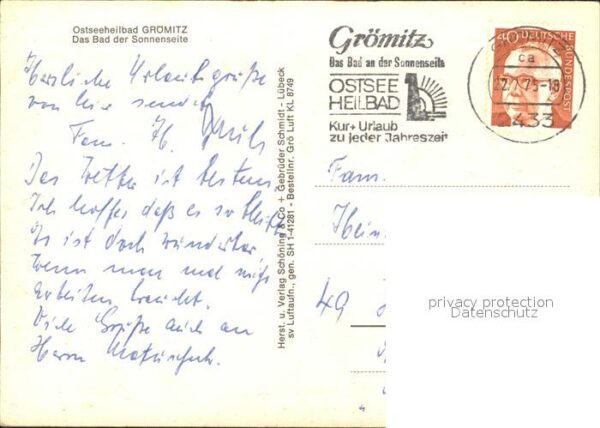 Ostseeheilbad GRÖMITZ
Das Bad der Sonnenseite
Herzliche Urlaubsgrüße
von hier sendet
Fam. H.
Das Wetter ist bestens
Ich hoffe, daß es so bleibt
Es ist doch wunderbar
wenn man mal nicht
arbeiten braucht.
Viele Grüße auch an
Herrn
Herst. u. Verlag Schöning & Co + Gebrüder Schmidt - Lübeck
sv Luftaufn., gen. SH 1-41281 - Bestellnr. Grö Luft KL 8749
Grömitz
Das Bad an der Sonnenseite
OSTSEE
HEILBAD
Kur + Urlaub
zu jeder Jahreszeit
ca
22.7.75-18
2433
40 DEUTSCHE
BUNDESPOST
Fam.
Hein
49
privacy protection
Datenschutz